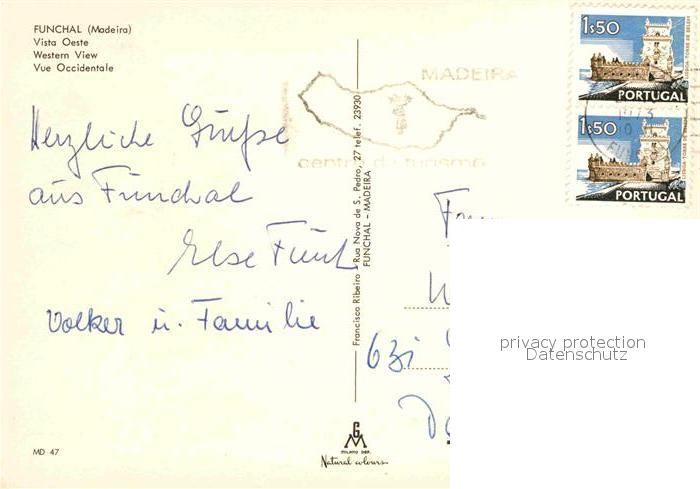 FUNCHAL (Madeira)
Vista Oeste
Western View
Vue Occidentale
1$50
PORTUGAL
1$50
PORTUGAL
MADEIRA
centro de turismo
1973
Herzliche Grüße
aus Funchal
Else
Volker u. Familie
Francisco Ribeiro - Rua Nova de S. Pedro, 27 telef. 23930
FUNCHAL - MADEIRA
privacy protection
Datenschutz
MD 47
GM
MILANO DEP.
Natural colours